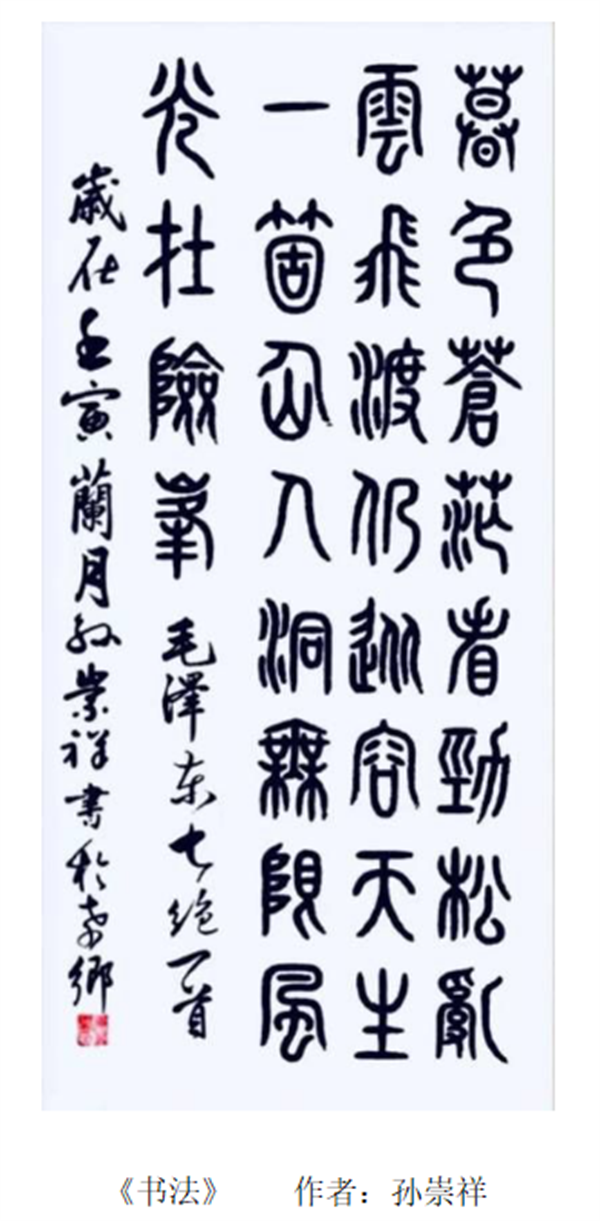 暮色蒼茫看勁松亂
雲飛渡仍從容天生
一箇仙人洞無限風
光在險峯 毛澤东七绝一首
歲在壬寅蘭月孙崇祥書於孝鄉
《书法》 作者：孙崇祥